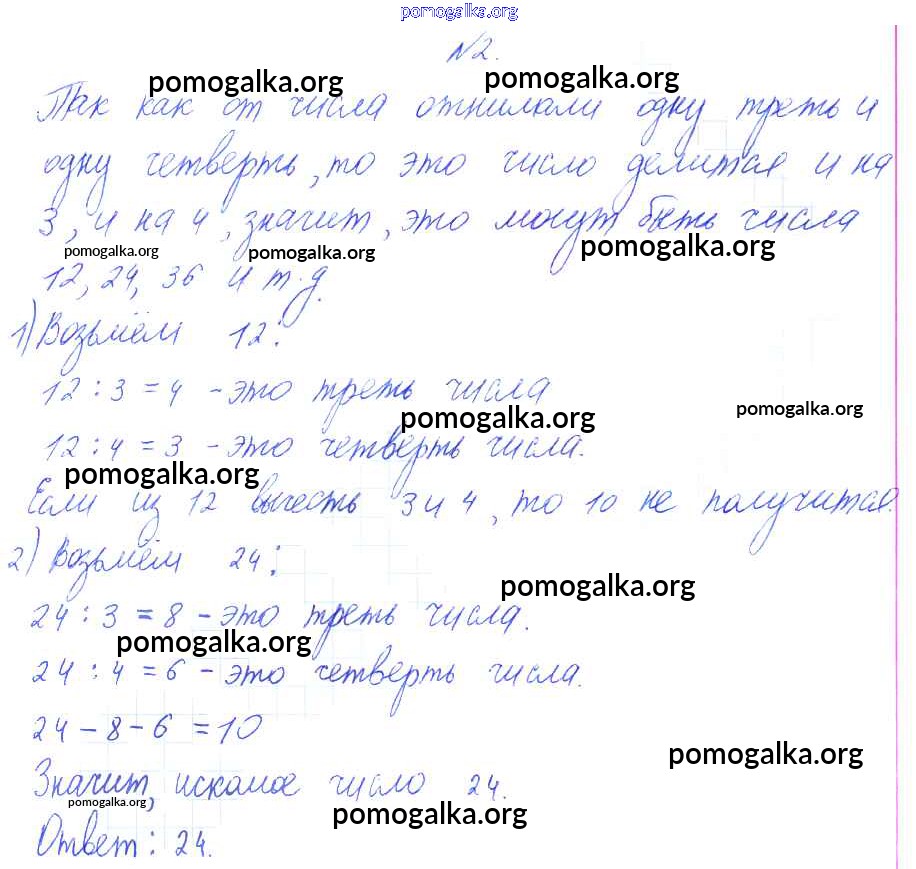 pomogalka.org
№2.
pomogalka.org pomogalka.org
Так как от числа отнимали одну треть и
одну четверть, то это число делится и на
3, и на 4, значит, это могут быть числа
pomogalka.org pomogalka.org pomogalka.org
12, 24, 36 и т.д.
1) Возьмём 12:
12 : 3 = 4 - это треть числа
pomogalka.org pomogalka.org
12 : 4 = 3 - это четверть числа.
pomogalka.org
Если из 12 вычесть 3 и 4, то 10 не получится.
2) Возьмём 24:
pomogalka.org
24 : 3 = 8 - это треть числа.
pomogalka.org
24 : 4 = 6 - это четверть числа.
24 - 8 - 6 = 10
pomogalka.org
Значит, искомое число 24.
pomogalka.org pomogalka.org
Ответ: 24.